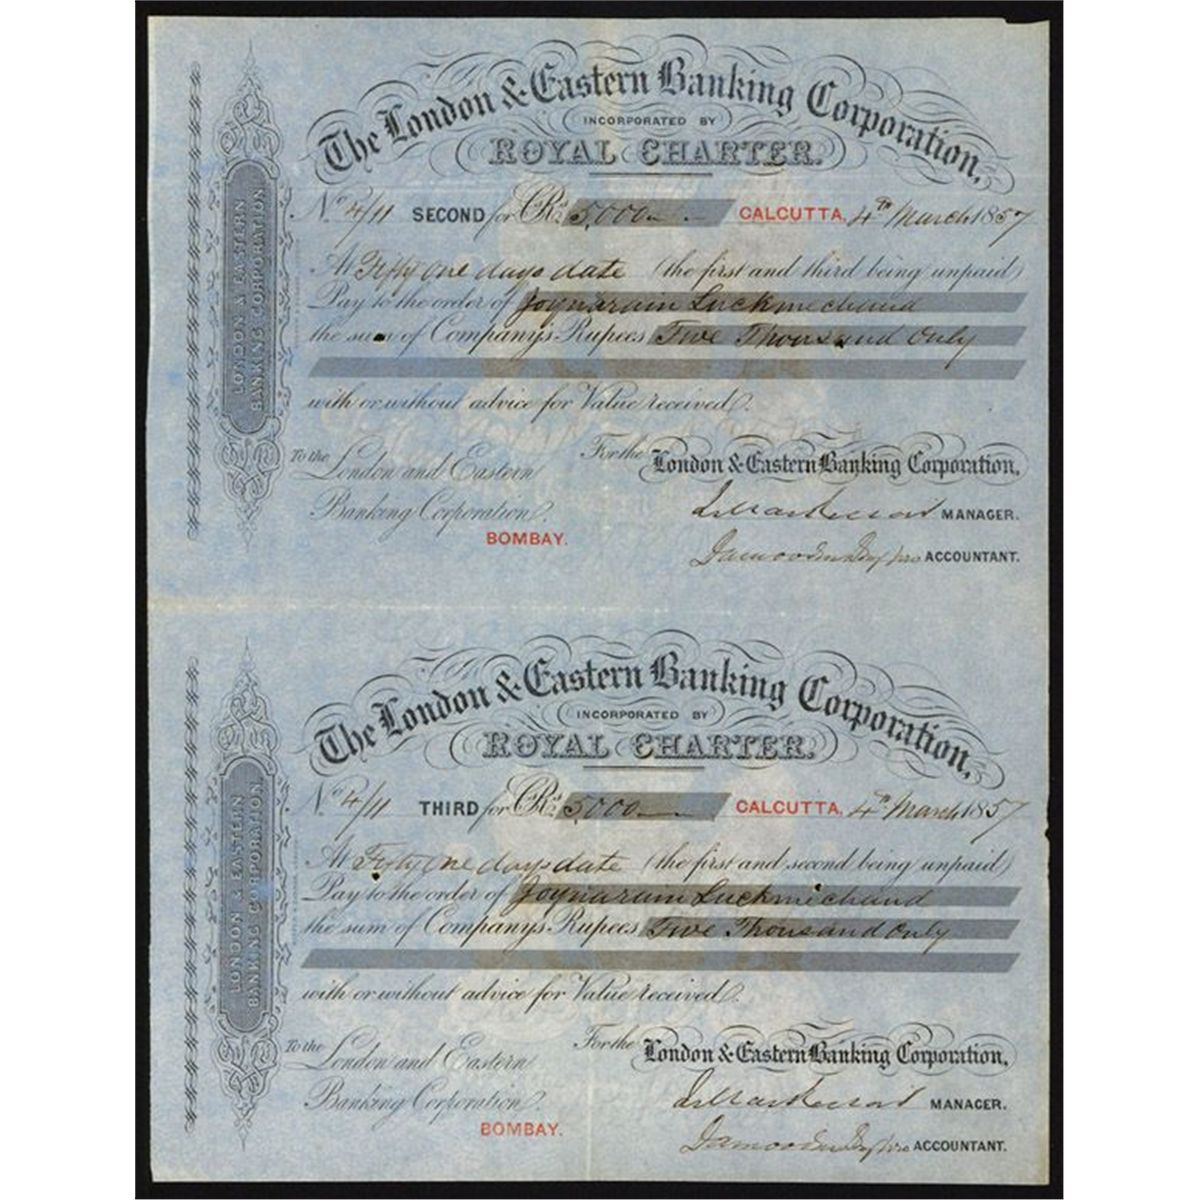 The London & Eastern Banking Corporation,
INCORPORATED BY
ROYAL CHARTER.
LONDON & EASTERN
BANKING CORPORATION
No 4/11 SECOND for CRs 5,000 CALCUTTA, 4th March 1857
At Fifty one days date (the first and third being unpaid)
Pay to the order of Joynarain Luckmichand
the sum of Company's Rupees Five Thousand Only
with or without advice for Value received.
To the London and Eastern
Banking Corporation.
BOMBAY.
For the London & Eastern Banking Corporation,
MANAGER.
ACCOUNTANT.
The London & Eastern Banking Corporation,
INCORPORATED BY
ROYAL CHARTER.
LONDON & EASTERN
BANKING CORPORATION
No 4/11 THIRD for CRs 5,000 CALCUTTA, 4th March 1857
At Fifty one days date (the first and second being unpaid)
Pay to the order of Joynarain Luckmichand
the sum of Company's Rupees Five Thousand Only
with or without advice for Value received.
To the London and Eastern
Banking Corporation.
BOMBAY.
For the London & Eastern Banking Corporation,
MANAGER.
ACCOUNTANT.